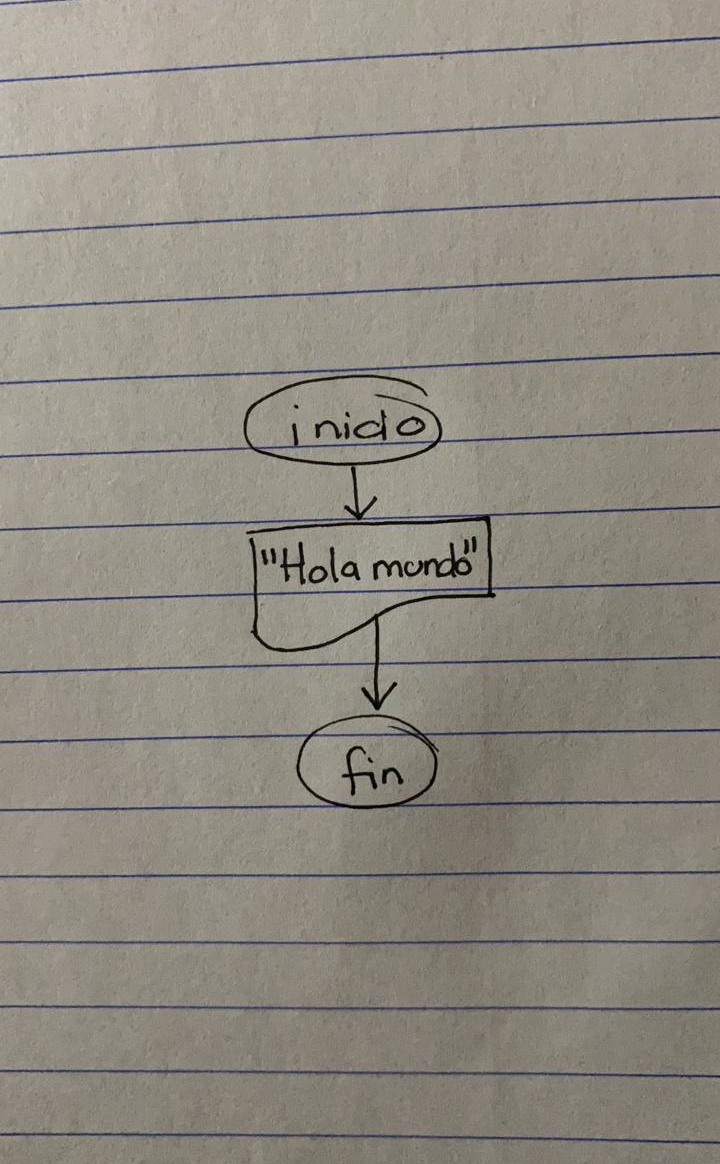 inicio
"Hola mundo"
fin